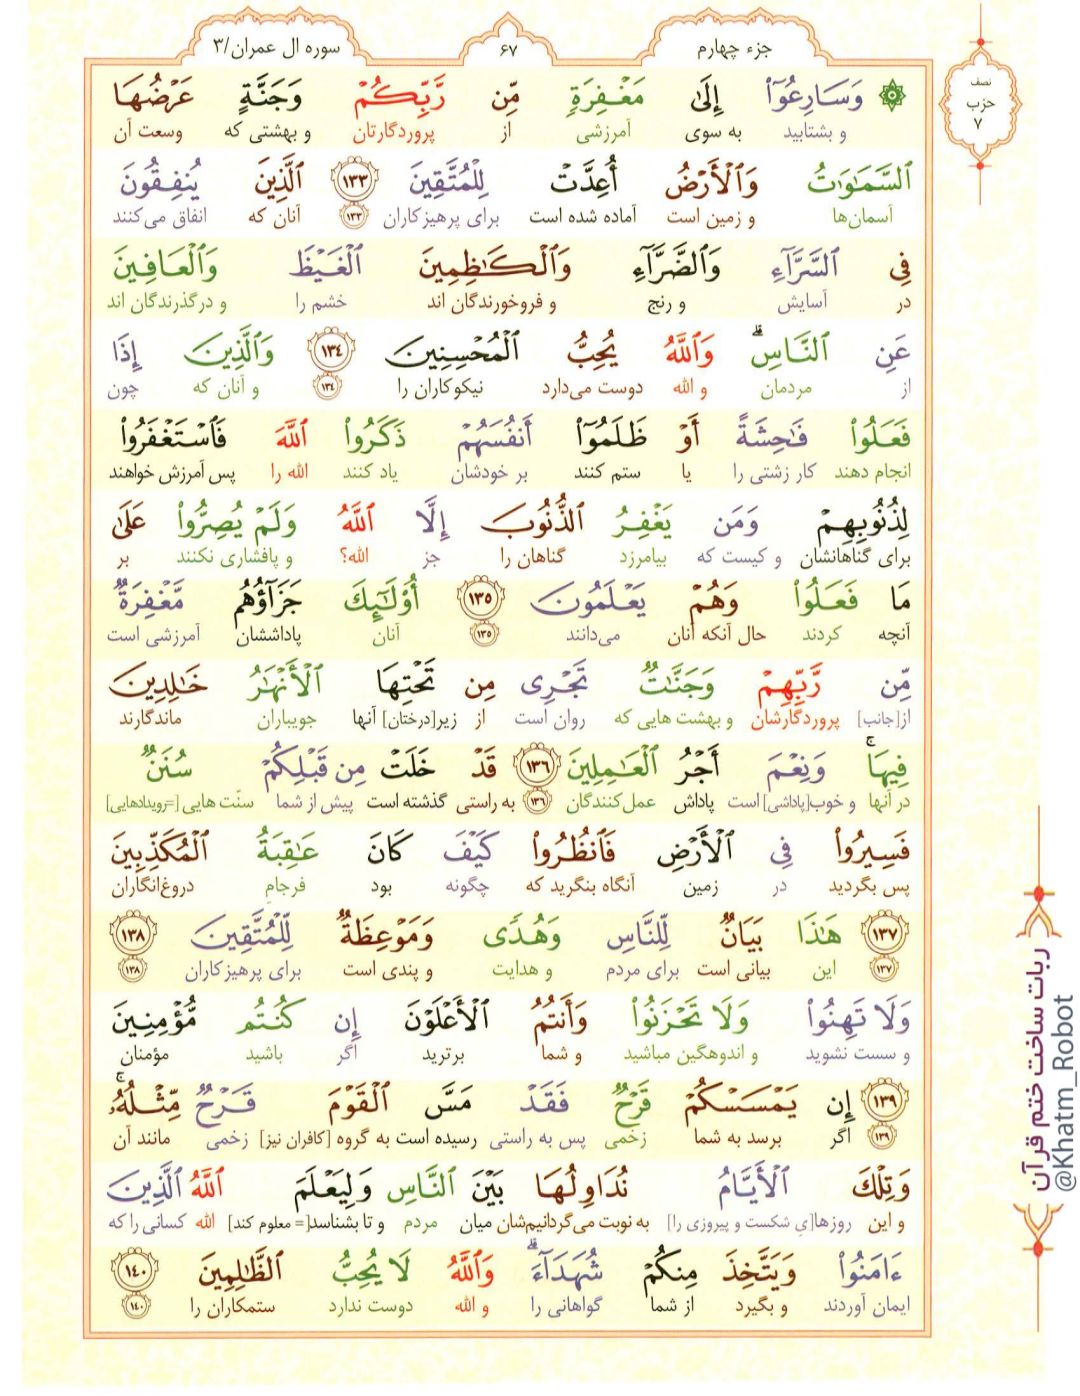 جزء چهارم
۶۷
سوره ال عمران/۳
نصف
حزب
۷
۞ وَسَارِعُوٓا۟ إِلَىٰ مَغْفِرَةٍ مِّن رَّبِّكُمْ وَجَنَّةٍ عَرْضُهَا
و بشتابید به سوی آمرزشی از پروردگارتان و بهشتی که وسعت آن
ٱلسَّمَـٰوَٰتُ وَٱلْأَرْضُ أُعِدَّتْ لِلْمُتَّقِينَ ١٣٣ ٱلَّذِينَ يُنفِقُونَ
آسمان‌ها و زمین است آماده شده است برای پرهیزکاران ۱۳۳ آنان که انفاق می‌کنند
فِى ٱلسَّرَّآءِ وَٱلضَّرَّآءِ وَٱلْكَـٰظِمِينَ ٱلْغَيْظَ وَٱلْعَافِينَ
در آسایش و رنج و فروخورندگان اند خشم را و درگذرندگان اند
عَنِ ٱلنَّاسِ ۗ وَٱللَّهُ يُحِبُّ ٱلْمُحْسِنِينَ ١٣٤ وَٱلَّذِينَ إِذَا
از مردمان و الله دوست می‌دارد نیکوکاران را ۱۳٤ و آنان که چون
فَعَلُوا۟ فَـٰحِشَةً أَوْ ظَلَمُوٓا۟ أَنفُسَهُمْ ذَكَرُوا۟ ٱللَّهَ فَٱسْتَغْفَرُوا۟
انجام دهند کار زشتی را یا ستم کنند بر خودشان یاد کنند الله را پس آمرزش خواهند
لِذُنُوبِهِمْ وَمَن يَغْفِرُ ٱلذُّنُوبَ إِلَّا ٱللَّهُ وَلَمْ يُصِرُّوا۟ عَلَىٰ
برای گناهانشان و کیست که بیامرزد گناهان را جز الله؟ و پافشاری نکنند بر
مَا فَعَلُوا۟ وَهُمْ يَعْلَمُونَ ١٣٥ أُو۟لَـٰٓئِكَ جَزَآؤُهُم مَّغْفِرَةٌ
آنچه کردند حال آنکه آنان می‌دانند ۱۳۵ آنان پاداششان آمرزشی است
مِّن رَّبِّهِمْ وَجَنَّـٰتٌ تَجْرِى مِن تَحْتِهَا ٱلْأَنْهَـٰرُ خَـٰلِدِينَ
از[جانب] پروردگارشان و بهشت هایی که روان است از زیر[درختان] آنها جویباران ماندگارند
فِيهَا ۚ وَنِعْمَ أَجْرُ ٱلْعَـٰمِلِينَ ١٣٦ قَدْ خَلَتْ مِن قَبْلِكُمْ سُنَنٌ
در آنها و خوب[پاداشی] است پاداش عمل‌کنندگان ۱۳۶ به راستی گذشته است پیش از شما سنّت هایی [=رویدادهایی]
فَسِيرُوا۟ فِى ٱلْأَرْضِ فَٱنظُرُوا۟ كَيْفَ كَانَ عَـٰقِبَةُ ٱلْمُكَذِّبِينَ
پس بگردید در زمین آنگاه بنگرید که چگونه بود فرجام دروغ‌انگاران
١٣٧ هَـٰذَا بَيَانٌ لِّلنَّاسِ وَهُدًى وَمَوْعِظَةٌ لِّلْمُتَّقِينَ ١٣٨
۱۳۷ این بیانی است برای مردم و هدایت و پندی است برای پرهیزکاران ۱۳۸
وَلَا تَهِنُوا۟ وَلَا تَحْزَنُوا۟ وَأَنتُمُ ٱلْأَعْلَوْنَ إِن كُنتُم مُّؤْمِنِينَ
و سست نشوید و اندوهگین مباشید و شما برترید اگر باشید مؤمنان
١٣٩ إِن يَمْسَسْكُمْ قَرْحٌ فَقَدْ مَسَّ ٱلْقَوْمَ قَرْحٌ مِّثْلُهُۥ ۚ
۱۳۹ اگر برسد به شما زخمی پس به راستی رسیده است به گروه [کافران نیز] زخمی مانند آن
وَتِلْكَ ٱلْأَيَّامُ نُدَاوِلُهَا بَيْنَ ٱلنَّاسِ وَلِيَعْلَمَ ٱللَّهُ ٱلَّذِينَ
و این روزها[ی شکست و پیروزی را] به نوبت می‌گردانیم‌شان میان مردم و تا بشناسد[= معلوم کند] الله کسانی را که
ءَامَنُوا۟ وَيَتَّخِذَ مِنكُمْ شُهَدَآءَ ۗ وَٱللَّهُ لَا يُحِبُّ ٱلظَّـٰلِمِينَ ١٤٠
ایمان آوردند و بگیرد از شما گواهانی را و الله دوست ندارد ستمکاران را ۱٤۰
ربات ساخت ختم قرآن
@Khatm_Robot